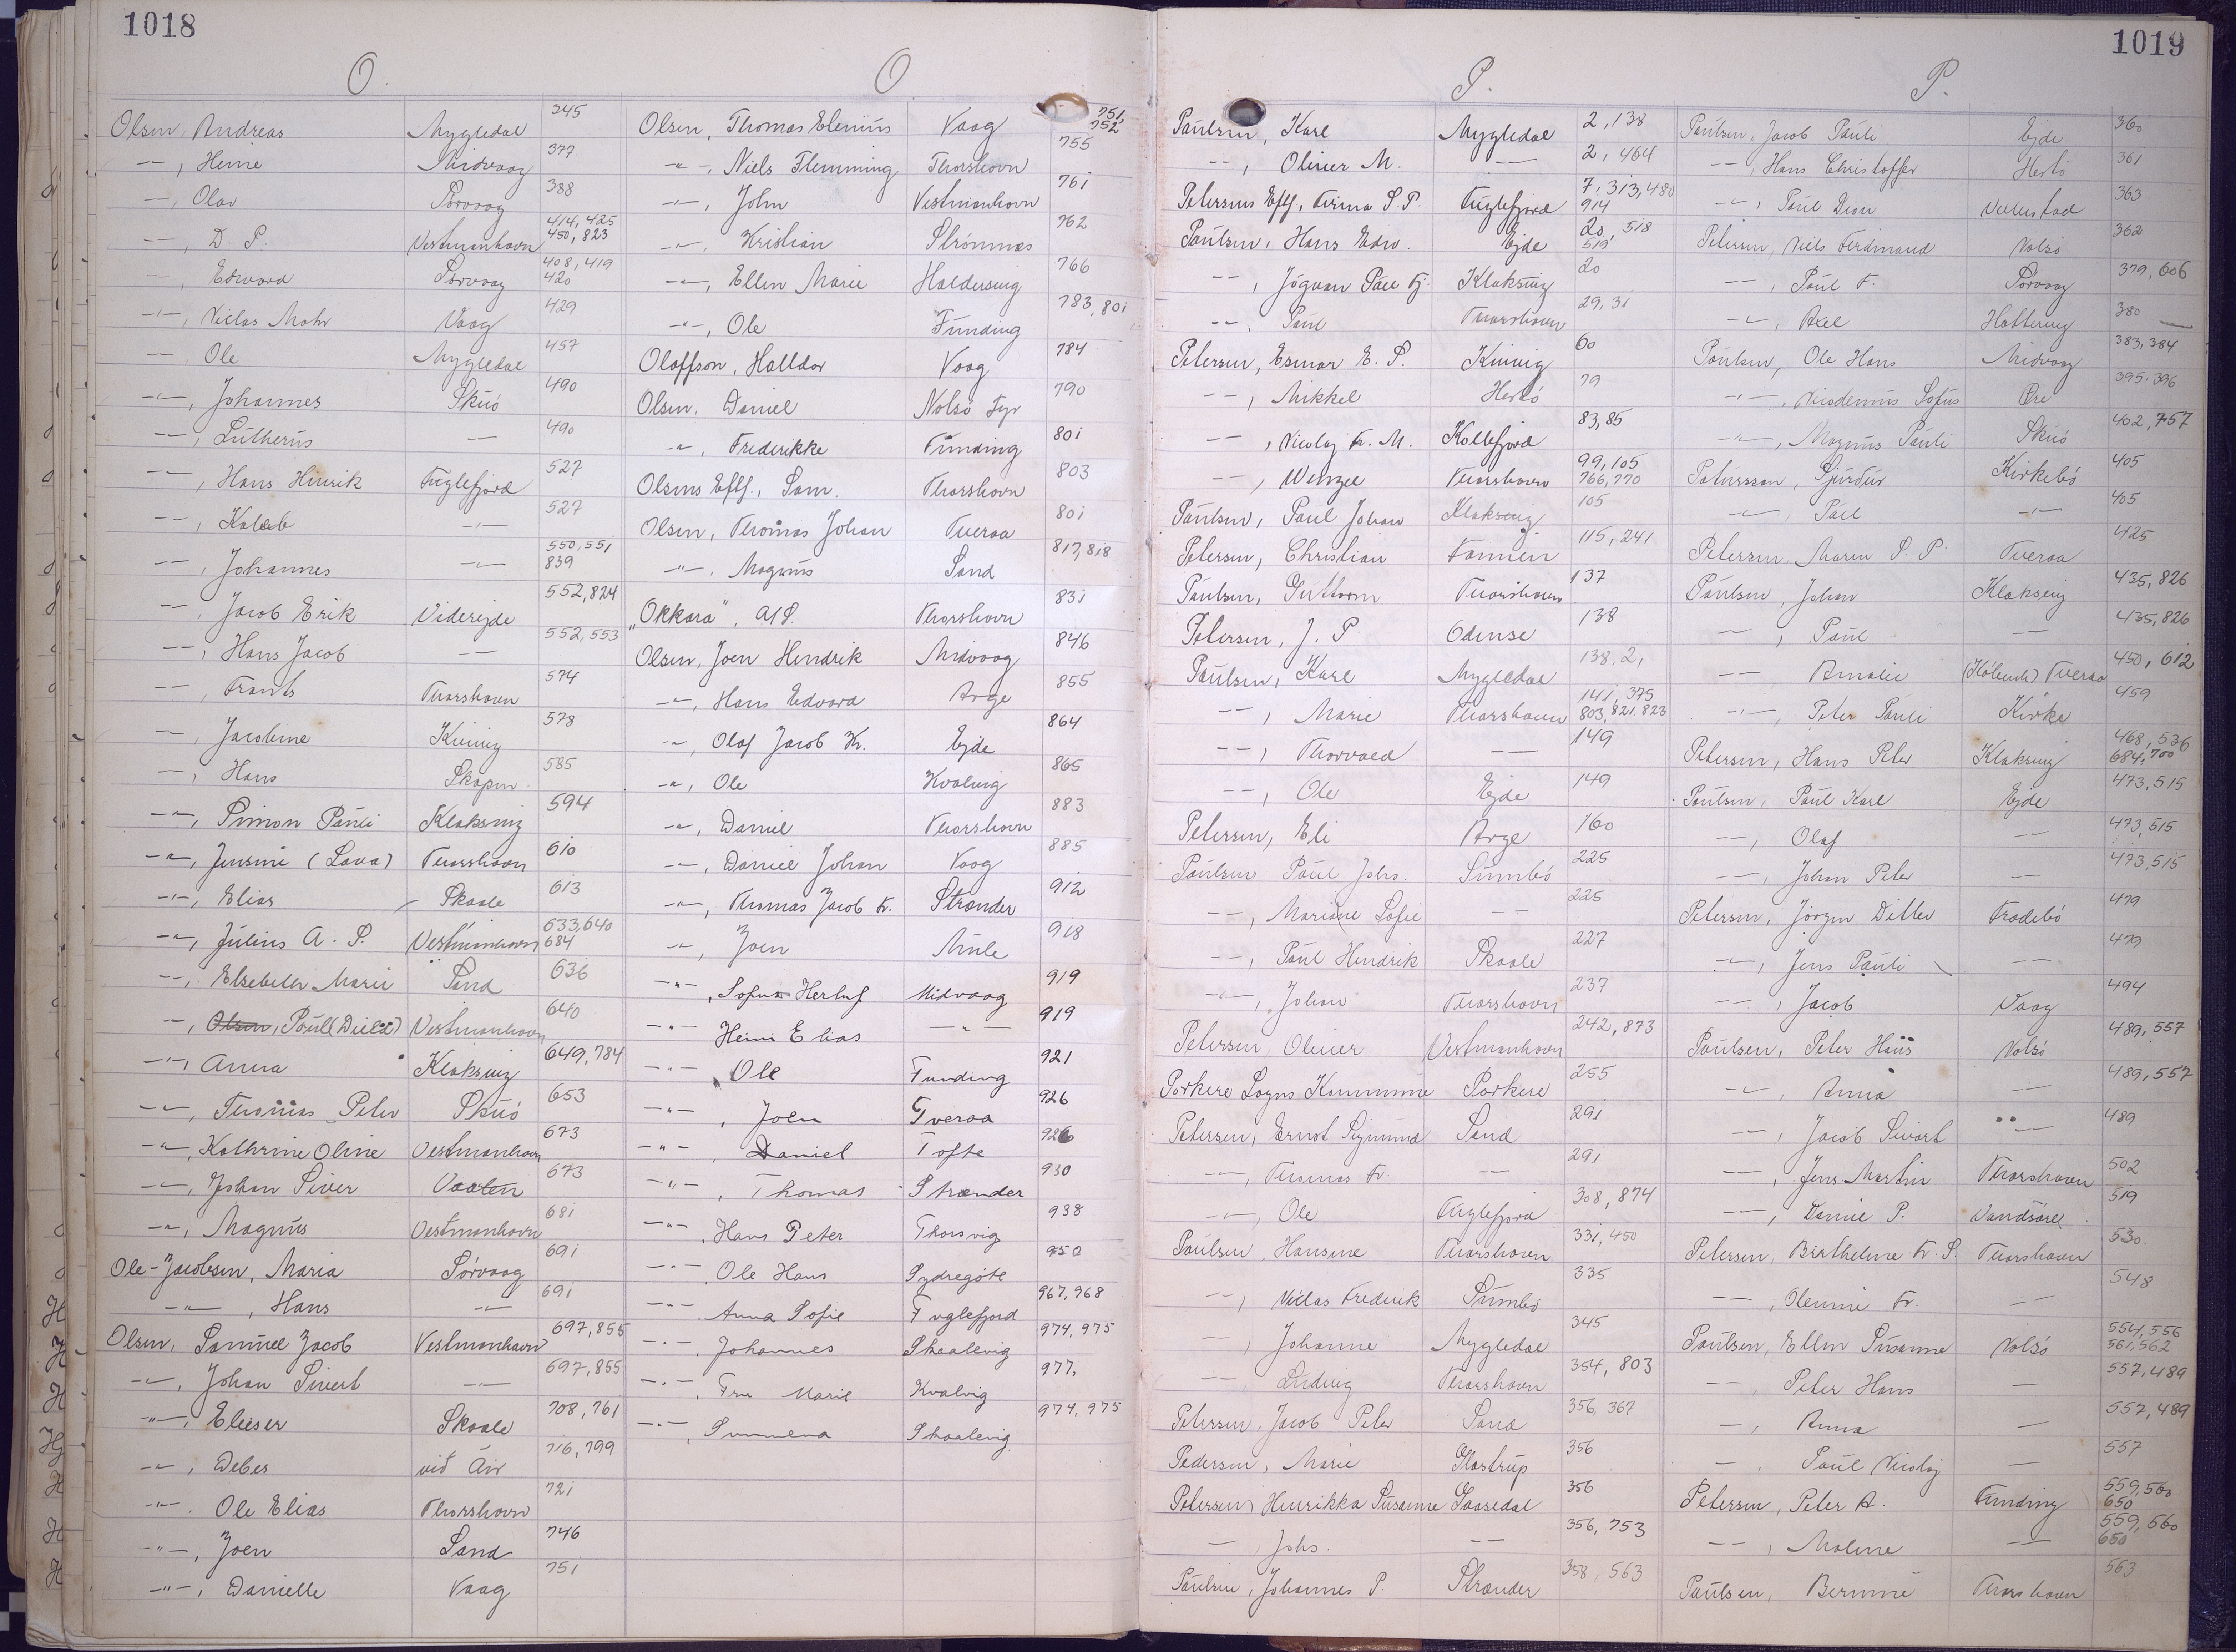 1018
O.
Olsen, Andreas Mygledal 345
—"—, Heine Midvaag 377
—"—, Olav Sørvaag 388
—"—, D. P. Vestmanhavn 414, 425 450, 823
—"—, Edward Sørvaag 408, 419 420
—"—, Niclas Mohr Vaag 429
—"—, Ole Mygledal 457
—"—, Johannes Skuö 490
—"—, Lutherus —"— 490
—"—, Hans Hinrik Fuglefjord 527
—"—, Kaleb —"— 527
—"—, Johannes —"— 550, 551 839
—"—, Jacob Erik Viderejde 552, 824
—"—, Hans Jacob —"— 552, 553
—"—, Frants Thorshavn 574
—"—, Jacobine Kuniig 578
—"—, Hans Skopun 585
—"—, Simon Pauli Klaksvig 594
—"—, Jensine (Lava) Thorshavn 610
—"—, Elias Skaale 613
—"—, Julius A. P. Vestmanhavn 633, 640 684
—"—, Elsebeth Marie Sand 636
—"—, Olsen, Poul (Dielä) Vestmanhavn 640
—"—, Anna Klaksvig 649, 784
—"—, Thomas Peter Skuö 653
—"—, Kathrine Oline Vestmanhavn 673
—"—, Johan Siver Vaaten 673
—"—, Magnus Vestmanhavn 681
Ole-Jacobsen, Maria Sørvaag 691
—"—, Hans —"— 691
Olsen, Samuel Jacob Vestmanhavn 697, 855
—"—, Johan Sivert —"— 697, 855
—"—, Elieser Skaale 708, 761
—"—, Debes við Áir 716, 799
—"—. Ole Elias Thorshavn 721
—"—, Joen Sand 746
—"—, Danielle Vaag 751
O
Olsen, Thomas Elenius Vaag 751, 752
—"—, Niels Flemming Thorshavn 755
—"—, John Vestmanhavn 761
—"—, Kristian Strömnæs 762
—"—, Ellen Marie Haldersvig 766
—"—, Ole Funding 783, 801
Olaffson, Halldor Vaag 784
Olsen, Daniel Nolsö Fyr 790
—"—, Frederikke Funding 801
Olsens Eftf., Sam. Thorshavn 803
Olsen, Thomas Johan Tveraa 801
—"—. Magnus Sand 817, 818
"Okkara", A/S. Thorshavn 831
Olsen, Joen Hendrik Midvaag 846
—"—, Hans Edvard Arge 855
—"—, Olaf Jacob Kr. Ejde 864
—"—, Ole Kvalvig 865
—"—, Daniel Thorshavn 883
—"—, Daniel Johan Vaag 885
—"—, Thomas Jacob Fr. Strænder 912
—"—, Joen Mule 918
—"—, Sofus Herluf Midvaag 919
—"— Heini Elias —"— 919
—"— Ole Funding 921
—"—, Joen Tveraa 926
—"—, Daniel Tofte 926
—"—, Thomas Strænder 930
—"—, Hans Peter Thorsvig 938
—"—, Ole Hans Sydregöte 950
—"— Anna Sofie Fuglefjord 967, 968
—"—, Johannes Skaalevig 974, 975
—"—, Fru Marie Kvalvig 977,
—"—, Sunneva Skaalevig 974, 975
1019
P.
Paulsen, Karl Mygledal 2, 138
—"—, Oliver M. —"— 2, 464
Petersens Eftf, Firma S. P. Fuglefjord 7, 313, 480 914
Paulsen, Hans Edw. Ejde 20, 518 519
—"—, Jógvan Paul Fj. Klaksvig 20
—"—, Paul Thorshavn 29, 31
Petersen, Esmar E. S. Kuniig 60
—"—, Mikkel Hestö 79
—"—, Nicolaj Fr. M. Kollefjord 83, 85
—"—, Wenzel Thorshavn 99, 105 766, 770
Paulsen, Paul Johan Klaksvig 105
Petersen, Christian Famien 115, 241
Paulsen, Guttorm Thorshavn 137
Petersen, J. P. Odense 138
Paulsen, Karl Mygledal 138, 2,
—"—, Marie Thorshavn 141, 375 803, 821, 823
—"—, Thorvald —"— 149
—"—, Ole Ejde 149
Petersen, Eli Arge 160
Paulsen Paul Johs. Sumbö 225
—"—, Mariane Sofie —"— 225
—"—, Paul Hendrik Skaale 227
—"—, Johan Thorshavn 237
Petersen Oliver Vestmanhavn 242, 873
Porkere Sogns Kommune Porkere 255
Petersen, Ernst Sigmund Sand 291
—"—, Thomas Fr. —"— 291
—"—, Ole Fuglefjord 308, 874
Paulsen, Hansine Thorshavn 331, 450
—"—, Niclas Frederik Sumbö 335
—"—, Johanne Mygledal 345
—"— Ludvig Thorshavn 354, 803
Petersen, Jacob Peter Sand 356, 367
Pedersen, Marie Glostrup 356
Petersen, Henrikka Susanne Saxedal 356
—"— Johs. —"— 356, 753
Paulsen, Johannes P. Strænder 358, 563
P.
Paulsen, Jacob Pauli Ejde 360
—"— Hans Christoffer Hestö 361
—"—, Paul Dion Vellestad 363
Petersen, Niels Ferdinand Nolsö 362
—"—, Paul F. Sørvaag 379, 606
—"—, Axel Hattervig 380
Paulsen, Ole Hans Midvaag 383, 384
—"—, Nicodemus Sofus Øre 395, 396
—"—, Magnus Pauli Skuö 402, 757
Patursson, Sjurdur Kirkebö 405
—"—, Páll —"— 405
Petersen Maren S. P. Tveraa 425
Paulsen, Johan Klaksvig 435, 826
—"—, Paul —"— 435, 826
—"— Amalie Tveraa 450, 612
—"—, Peter Pauli Kirke 459
Petersen, Hans Peter Klaksvig 468, 536 684, 700
Paulsen, Paul Karl Ejde 473, 515
—"—, Olaf —"— 473, 515
—"—, Johan Peter —"— 473, 515
Petersen, Jörgen Ditlev Frodebö 479
—"—, Jens Pauli —"— 479
—"—, Jacob Vaag 494
Paulsen, Peter Hans Nolsö 489, 557
—"—, Anna —"— 489, 557
—"—, Jacob Sivert —"— 489
—"—, Jens Martin Thorshavn 502
—"—, Daniel P. Sandsøre 519
Petersen, Birtheline Fr. S. Thorshavn 530
—"—, Olevine Fr. —"— 548
Paulsen, Ellen Susanne Nolsö 554, 556 561, 562
—"— Peter Hans — 557, 489
—, Anna — 557, 489
—. Paul Nicolaj — 557
Petersen, Peter A. Funding 559, 560 650
—"—, Maline —"— 559, 560 650
Paulsen, Bernine Thorshavn 563